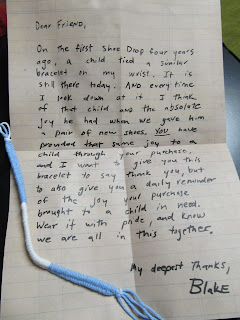 Dear Friend,
On the first Shoe Drop four years
ago, a child tied a similar
bracelet on my wrist. It is
still there today. And every time
I look down at it I think
of that child and the absolute
joy he had when we gave him
a pair of new shoes. You have
provided that same joy to a
child through your purchase
and I want to give you this
bracelet to say thank you, but
to also give you a daily reminder
of the joy your purchase
brought to a child in need.
Wear it with pride, and know
we are all in this together.
My deepest Thanks,
Blake